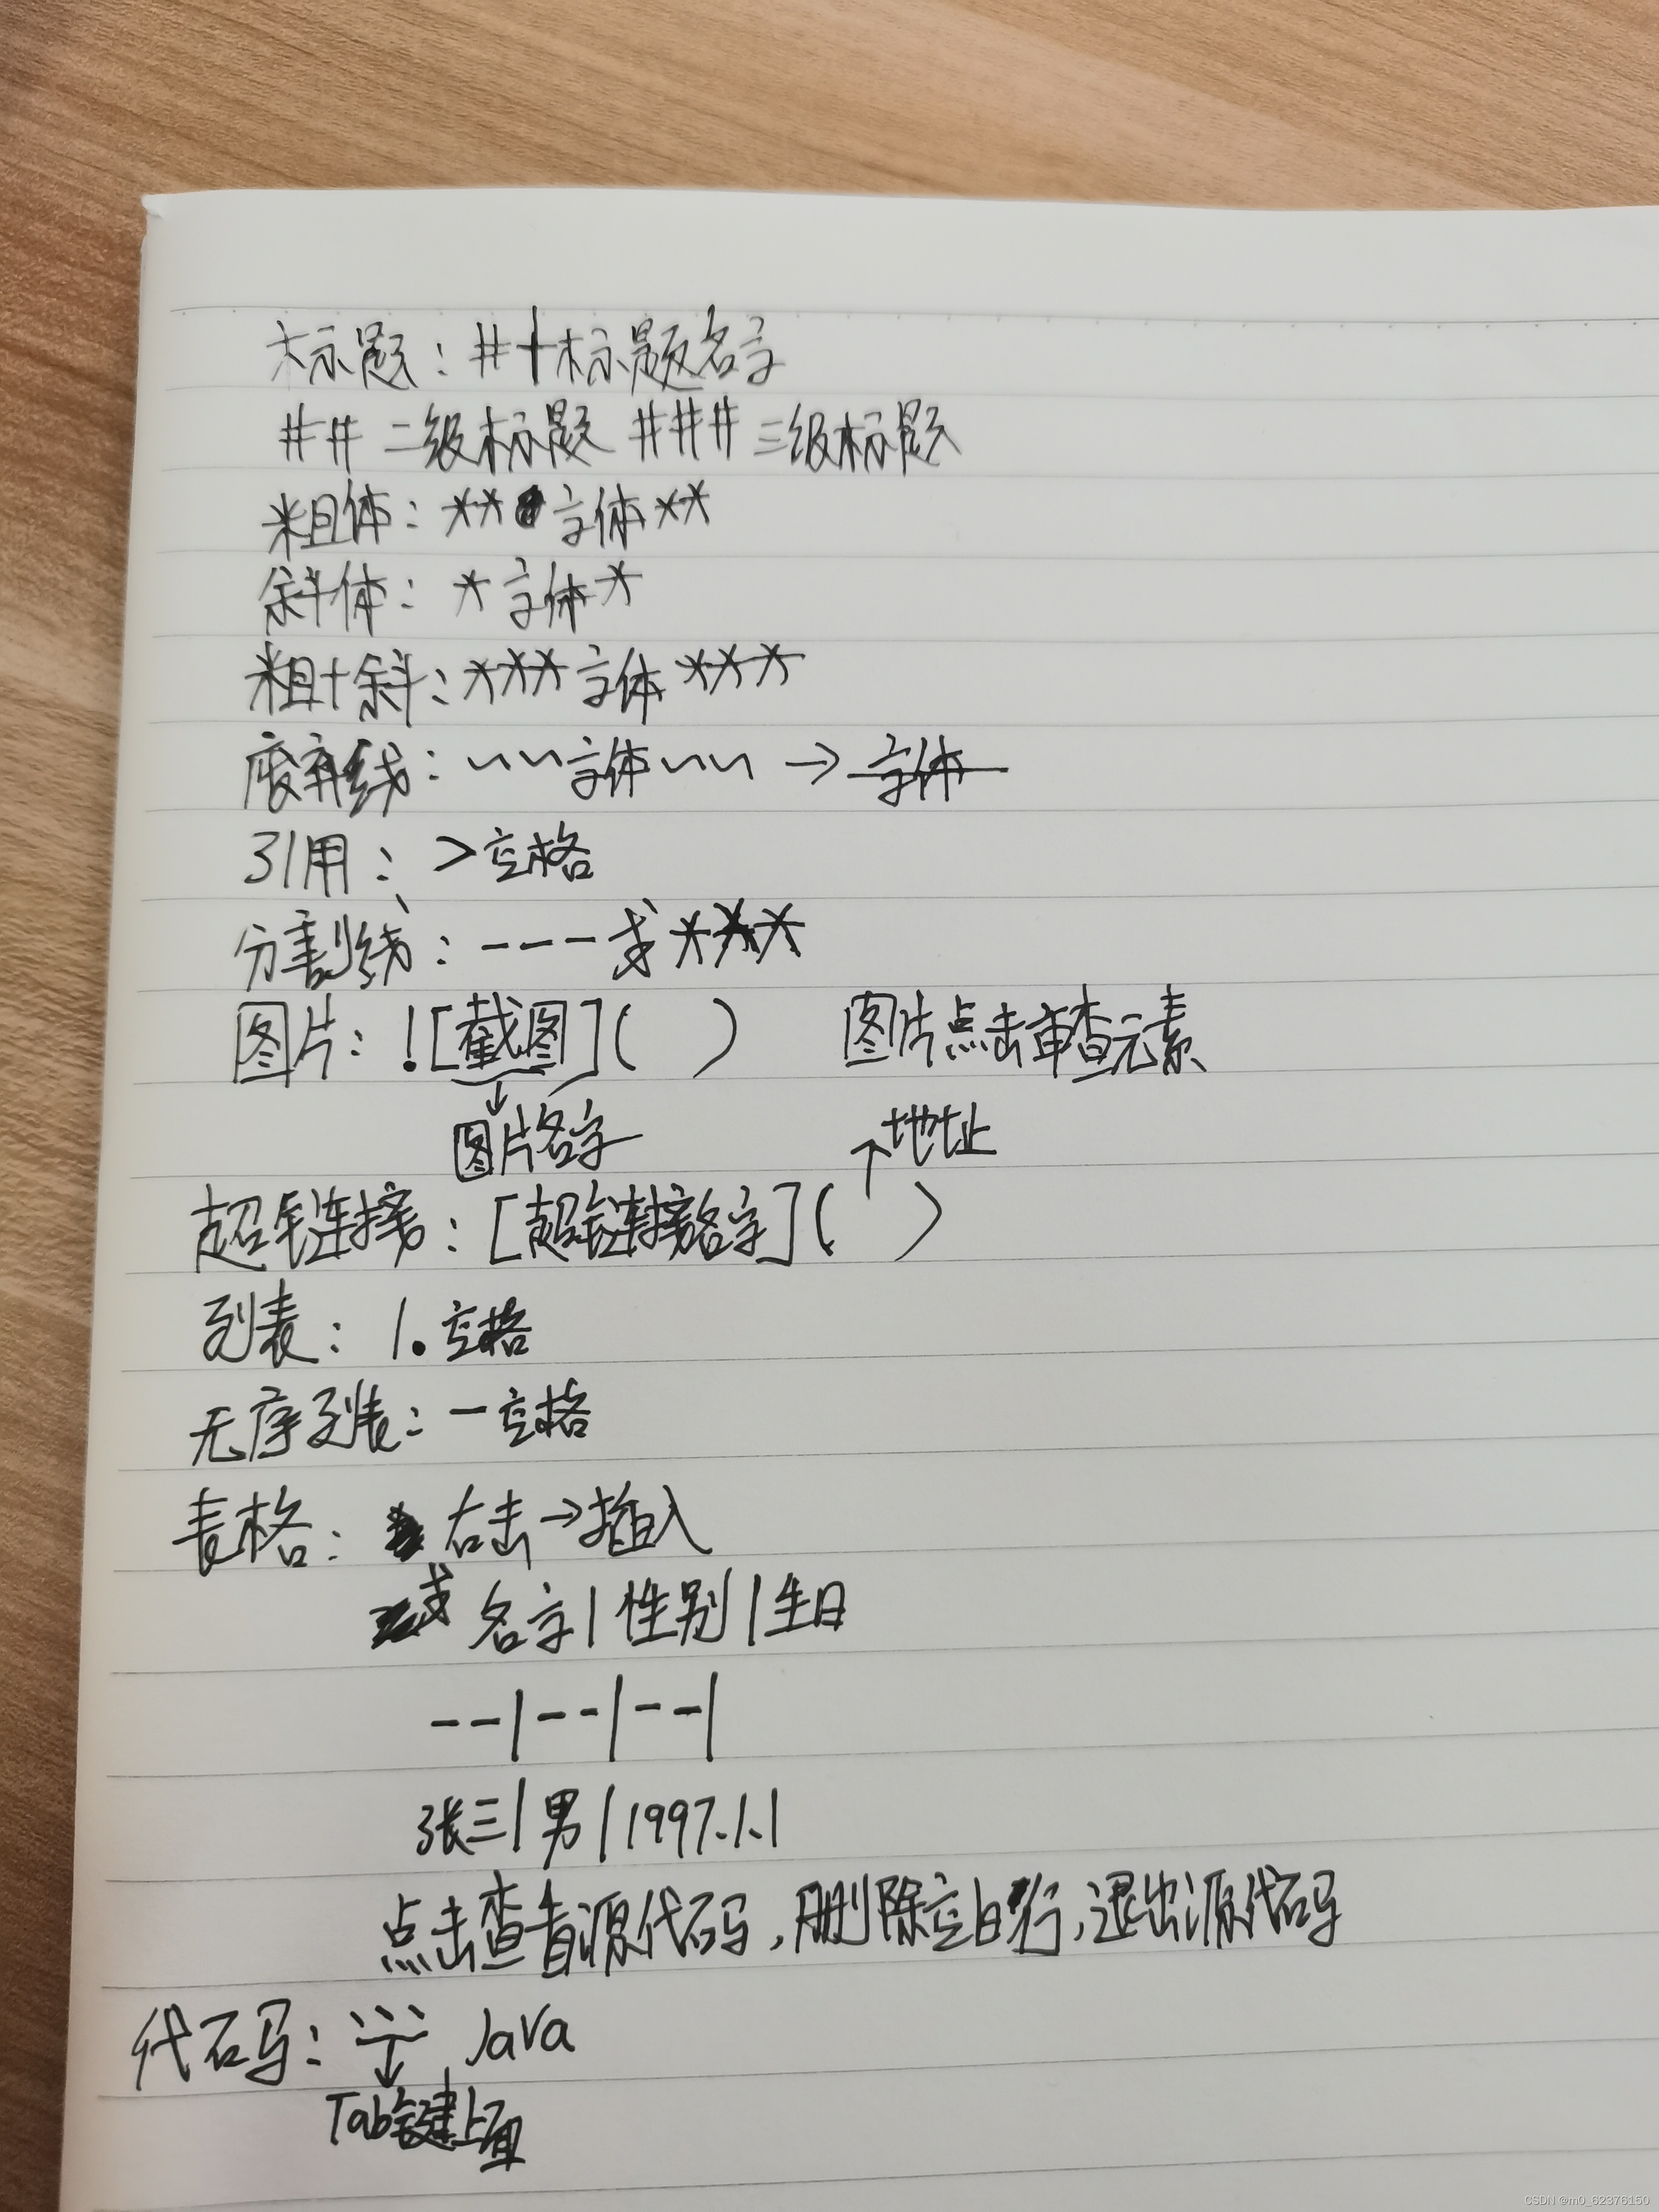 标题：#+标题名字
## 二级标题 ### 三级标题
粗体：** 字体**
斜体：*字体*
粗+斜：***字体***
废弃线：~~字体~~ → ~~字体~~
引用：>空格
分割线：---或***
图片：![截图]( ) 图片点击审查元素
↓
图片名字 ↑地址
超链接：[超链接名字]( )
列表：1.空格
无序列表：-空格
表格： 右击→插入
或 名字|性别|生日
--|--|--|
张三|男|1997.1.1
点击查看源代码，删除空白行，退出源代码
代码：``` Java
↓
Tab键上面
CSDN @m0_62376150